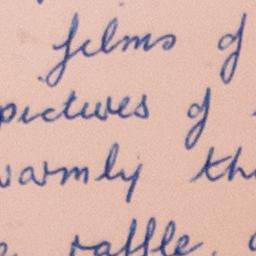 films of
pictures of
warmly
raffle.